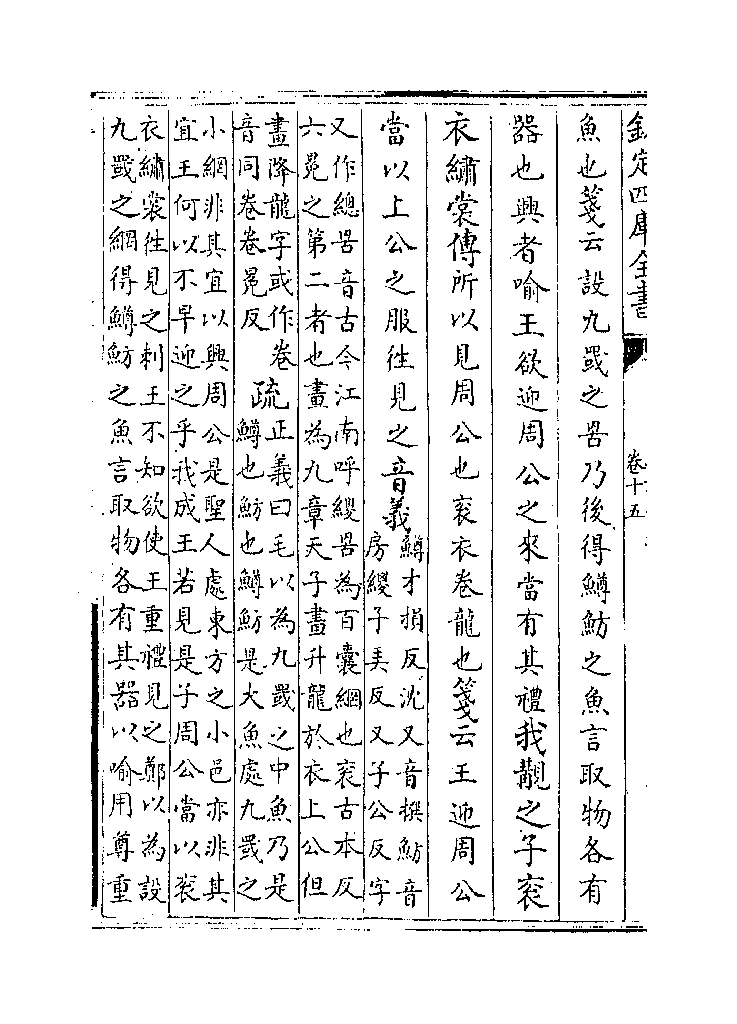 欽定四庫全書
卷十五
魚也箋云設九罭之罟乃後得鱒魴之魚言取物各有
器也興者喻王欲迎周公之來當有其禮我覯之子衮
衣繡裳傳所以見周公也衮衣卷龍也箋云王迎周公
當以上公之服徃見之音義
鱒才損反沈又音撰魴音
房緵子弄反又子公反字
又作總罟音古今江南呼緵罟為百囊網也衮古本反
六冕之第二者也畫為九章天子畫升龍於衣上公但
畫降龍字或作卷
音同卷卷冕反
疏
正義曰毛以為九罭之中魚乃是
鱒也魴也鱒魴是大魚處九罭之
小網非其宜以興周公是聖人處東方之小邑亦非其
宜王何以不早迎之乎我成王若見是子周公當以衮
衣繡裳徃見之刺王不知欲使王重禮見之鄭以為設
九罭之網得鱒魴之魚言取物各有其器以喻用尊重